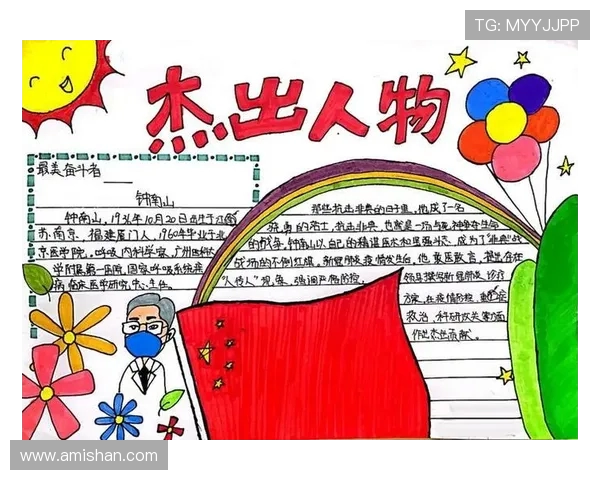 TG: MYYJJPP
杰出人物
最美奋斗者
钟南山
钟南山, 1936年10月20日出生于江南
苏南京, 福建厦门人, 1960年毕业于北
京医学院, 呼吸内科学家, 广州医科大
学附属第一医院, 国家呼吸系统疾
病临床医学研究中心主任。
那些抗击非典的日子里, 他成了一名
骁勇的战士, 抗击非典, 也就是一场与死神争夺生命
的战争, 钟南山以自己的精湛医术和坚强斗志, 成为了"非典"战
战场的不倒红旗, 新冠肺炎疫情发生后, 他 敢医敢言, 提出存在
"人传人"现象, 强调严格防控,
领导撰写新冠肺炎诊疗
方案, 在疫情防控, 重症
救治, 科研攻关等方面
作出杰出贡献。
www.amishan.com